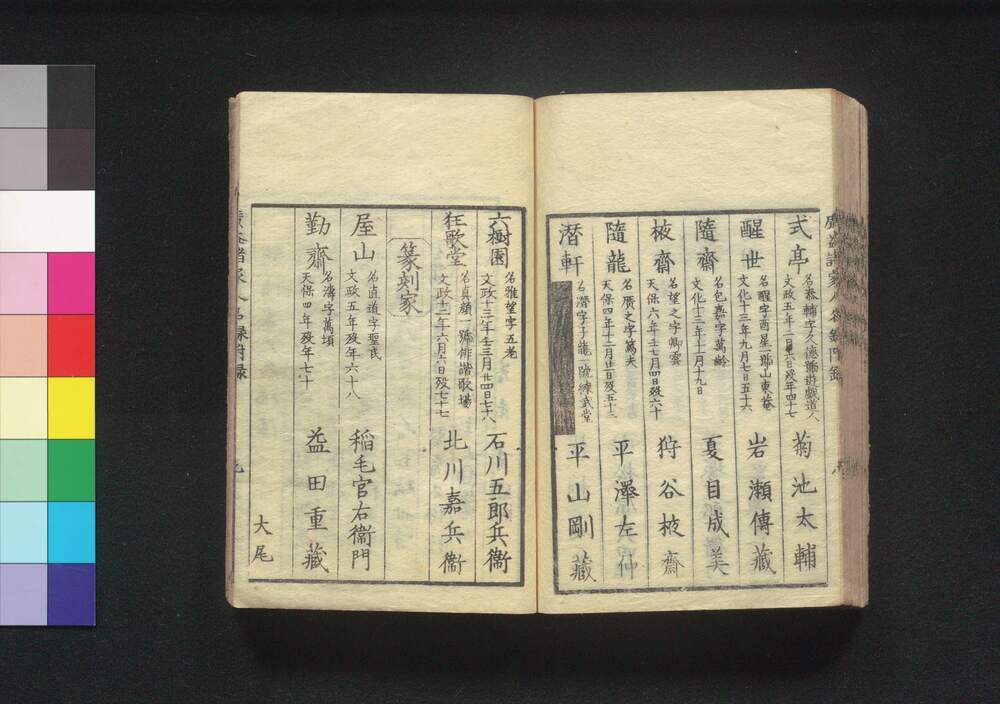 式亭
名泰輔字久德號遊戲道人
文政五年
菊池太輔
醒世
名醒字酉星一號山東菴
文化十三年九月七日五十六
岩瀨傳藏
隨齋
名包嘉字萬齡
文化十三年十一月十九日
夏目成美
棭齋
名望之字卿雲
天保六年壬七月四日歿六十
狩谷棭齋
隨龍
名廣之字篤夫
天保四年十二月廿二日歿五十三
平澤左仲
潛軒
名潛字子龍一號練武堂
平山剛藏
六樹園
名雅望字五老
文政十三年壬三月廿四日七十八
石川五郎兵衞
狂歌堂
名真顏一號俳諧歌場
文政十二年六月六日歿七十七
北川嘉兵衞
篆刻家
屋山
名直道字聖民
文政五年歿年六十八
稲毛官右衞門
勤齋
名濤字萬頃
天保四年歿年七十
益田重藏
大尾